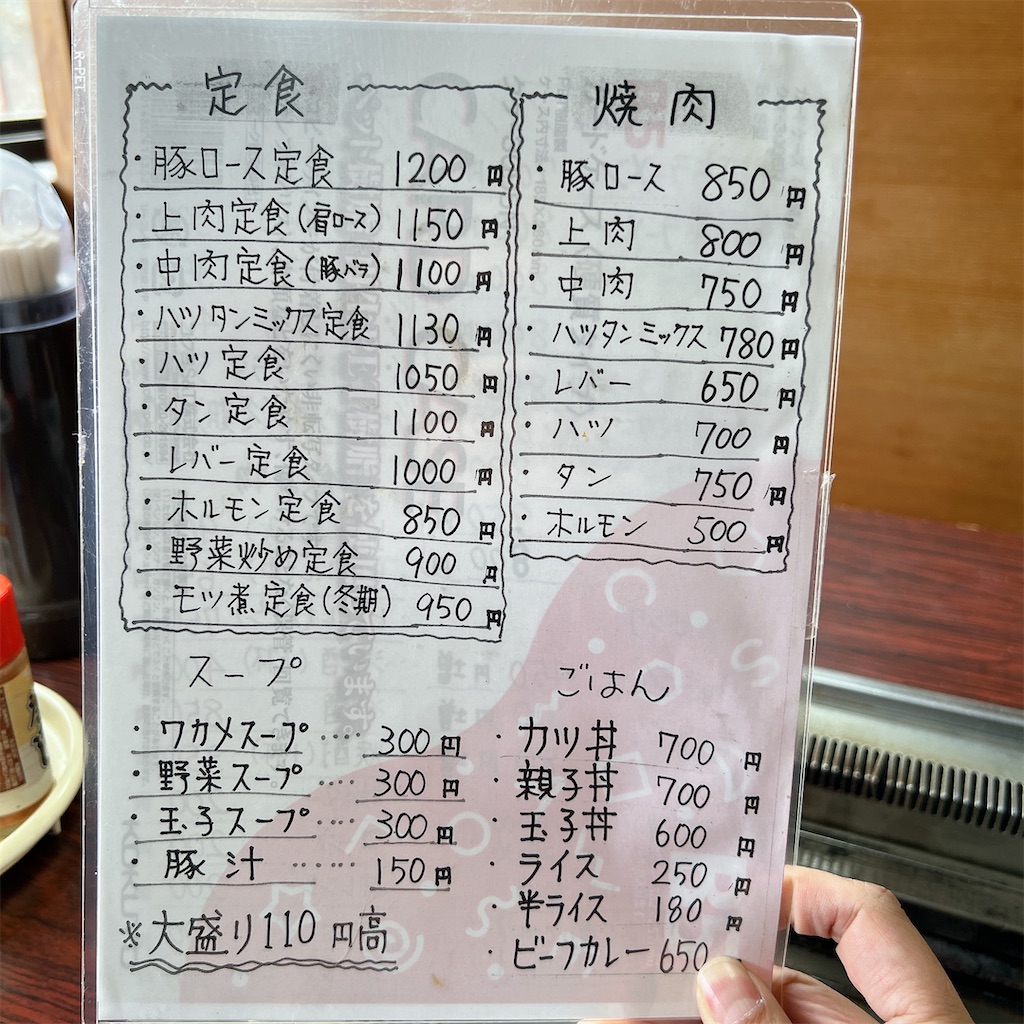 定食
・豚ロース定食 1200円
・上肉定食(肩ロース) 1150円
・中肉定食(豚バラ) 1100円
・ハツタンミックス定食 1130円
・ハツ定食 1050円
・タン定食 1100円
・レバー定食 1000円
・ホルモン定食 850円
・野菜炒め定食 900円
・モツ煮定食(冬期) 950円
焼肉
・豚ロース 850円
・上肉 800円
・中肉 750円
・ハツタンミックス 780円
・レバー 650円
・ハツ 700円
・タン 750円
・ホルモン 500円
スープ
・ワカメスープ…… 300円
・野菜スープ…… 300円
・玉子スープ…… 300円
・豚汁 …… 150円
※大盛り110円高
ごはん
・カツ丼 700円
・親子丼 700円
・玉子丼 600円
・ライス 250円
・半ライス 180円
・ビーフカレー 650